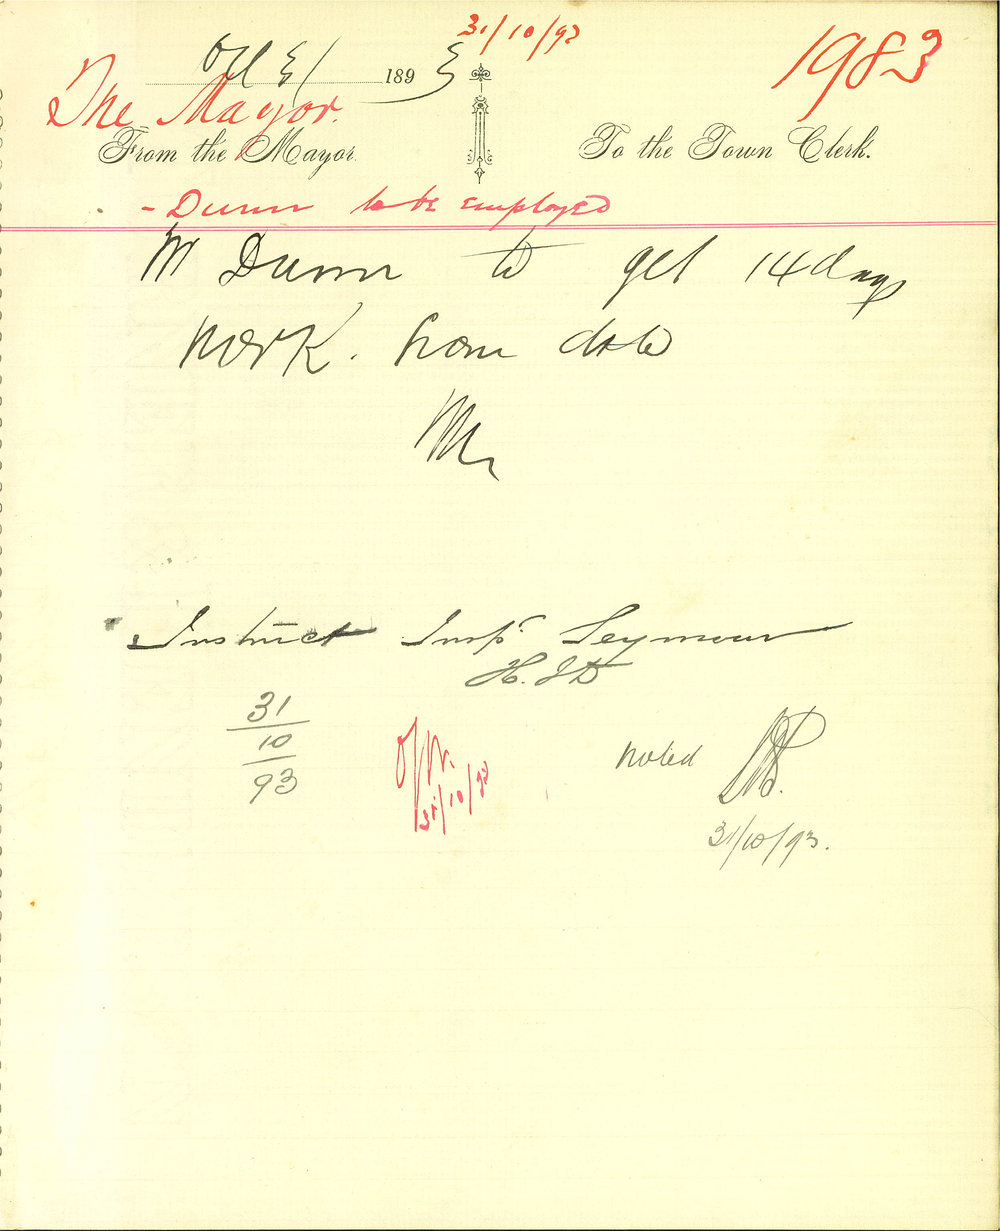 31/10/93
1983
Oct 31 1893
The Mayor.
From the Mayor
To the Town Clerk.
- Dunn to be employed
W Dunn to get 14 days
work. from date
Instruct Inspr Seymour
31
10
93
31/10/93
noted
31/10/93.